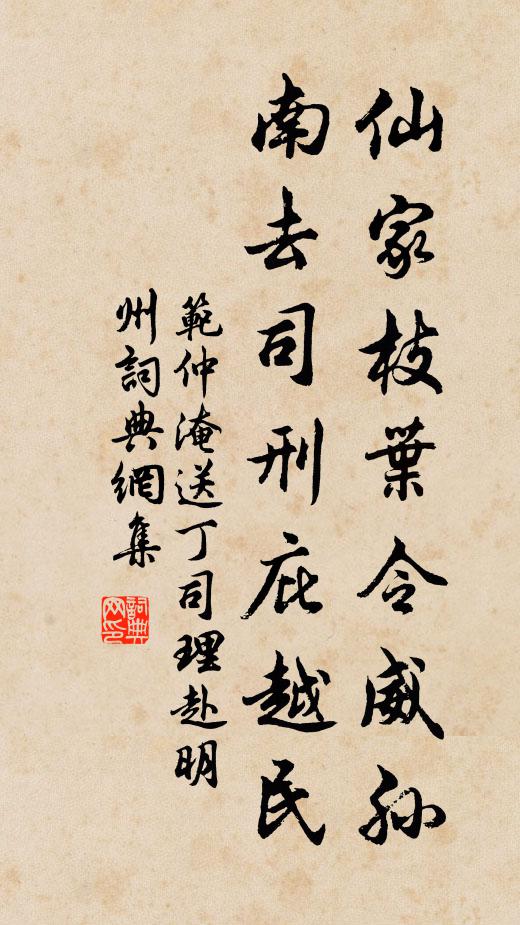 仙家枝葉令威孫
南去司刑庇越民
範仲淹送丁司理赴明
州詞典網集
詞典
网印